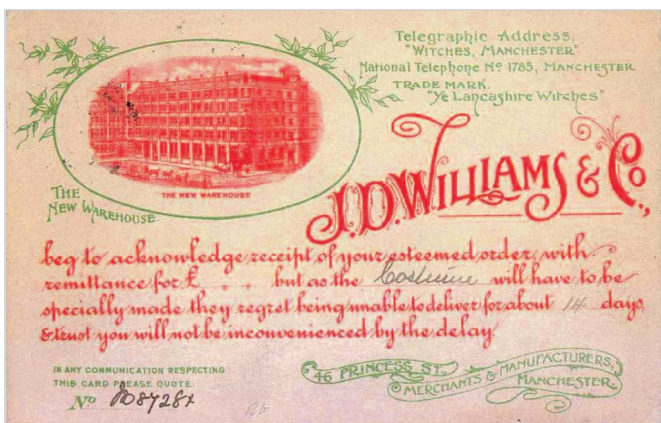 Telegraphic Address,
"WITCHES, MANCHESTER"
National Telephone Nº 1785, MANCHESTER
TRADE MARK.
"Ye Lancashire Witches"
THE NEW WAREHOUSE
THE
NEW WAREHOUSE.
J.D. WILLIAMS & Co.,
beg to acknowledge receipt of your esteemed order, with
remittance for £ , , but as the Costume will have to be
specially made they regret being unable to deliver for about 14 days,
& trust you will not be inconvenienced by the delay
IN ANY COMMUNICATION RESPECTING
THIS CARD PLEASE QUOTE
Nº
46 PRINCESS ST.,
MERCHANTS & MANUFACTURERS,
MANCHESTER.